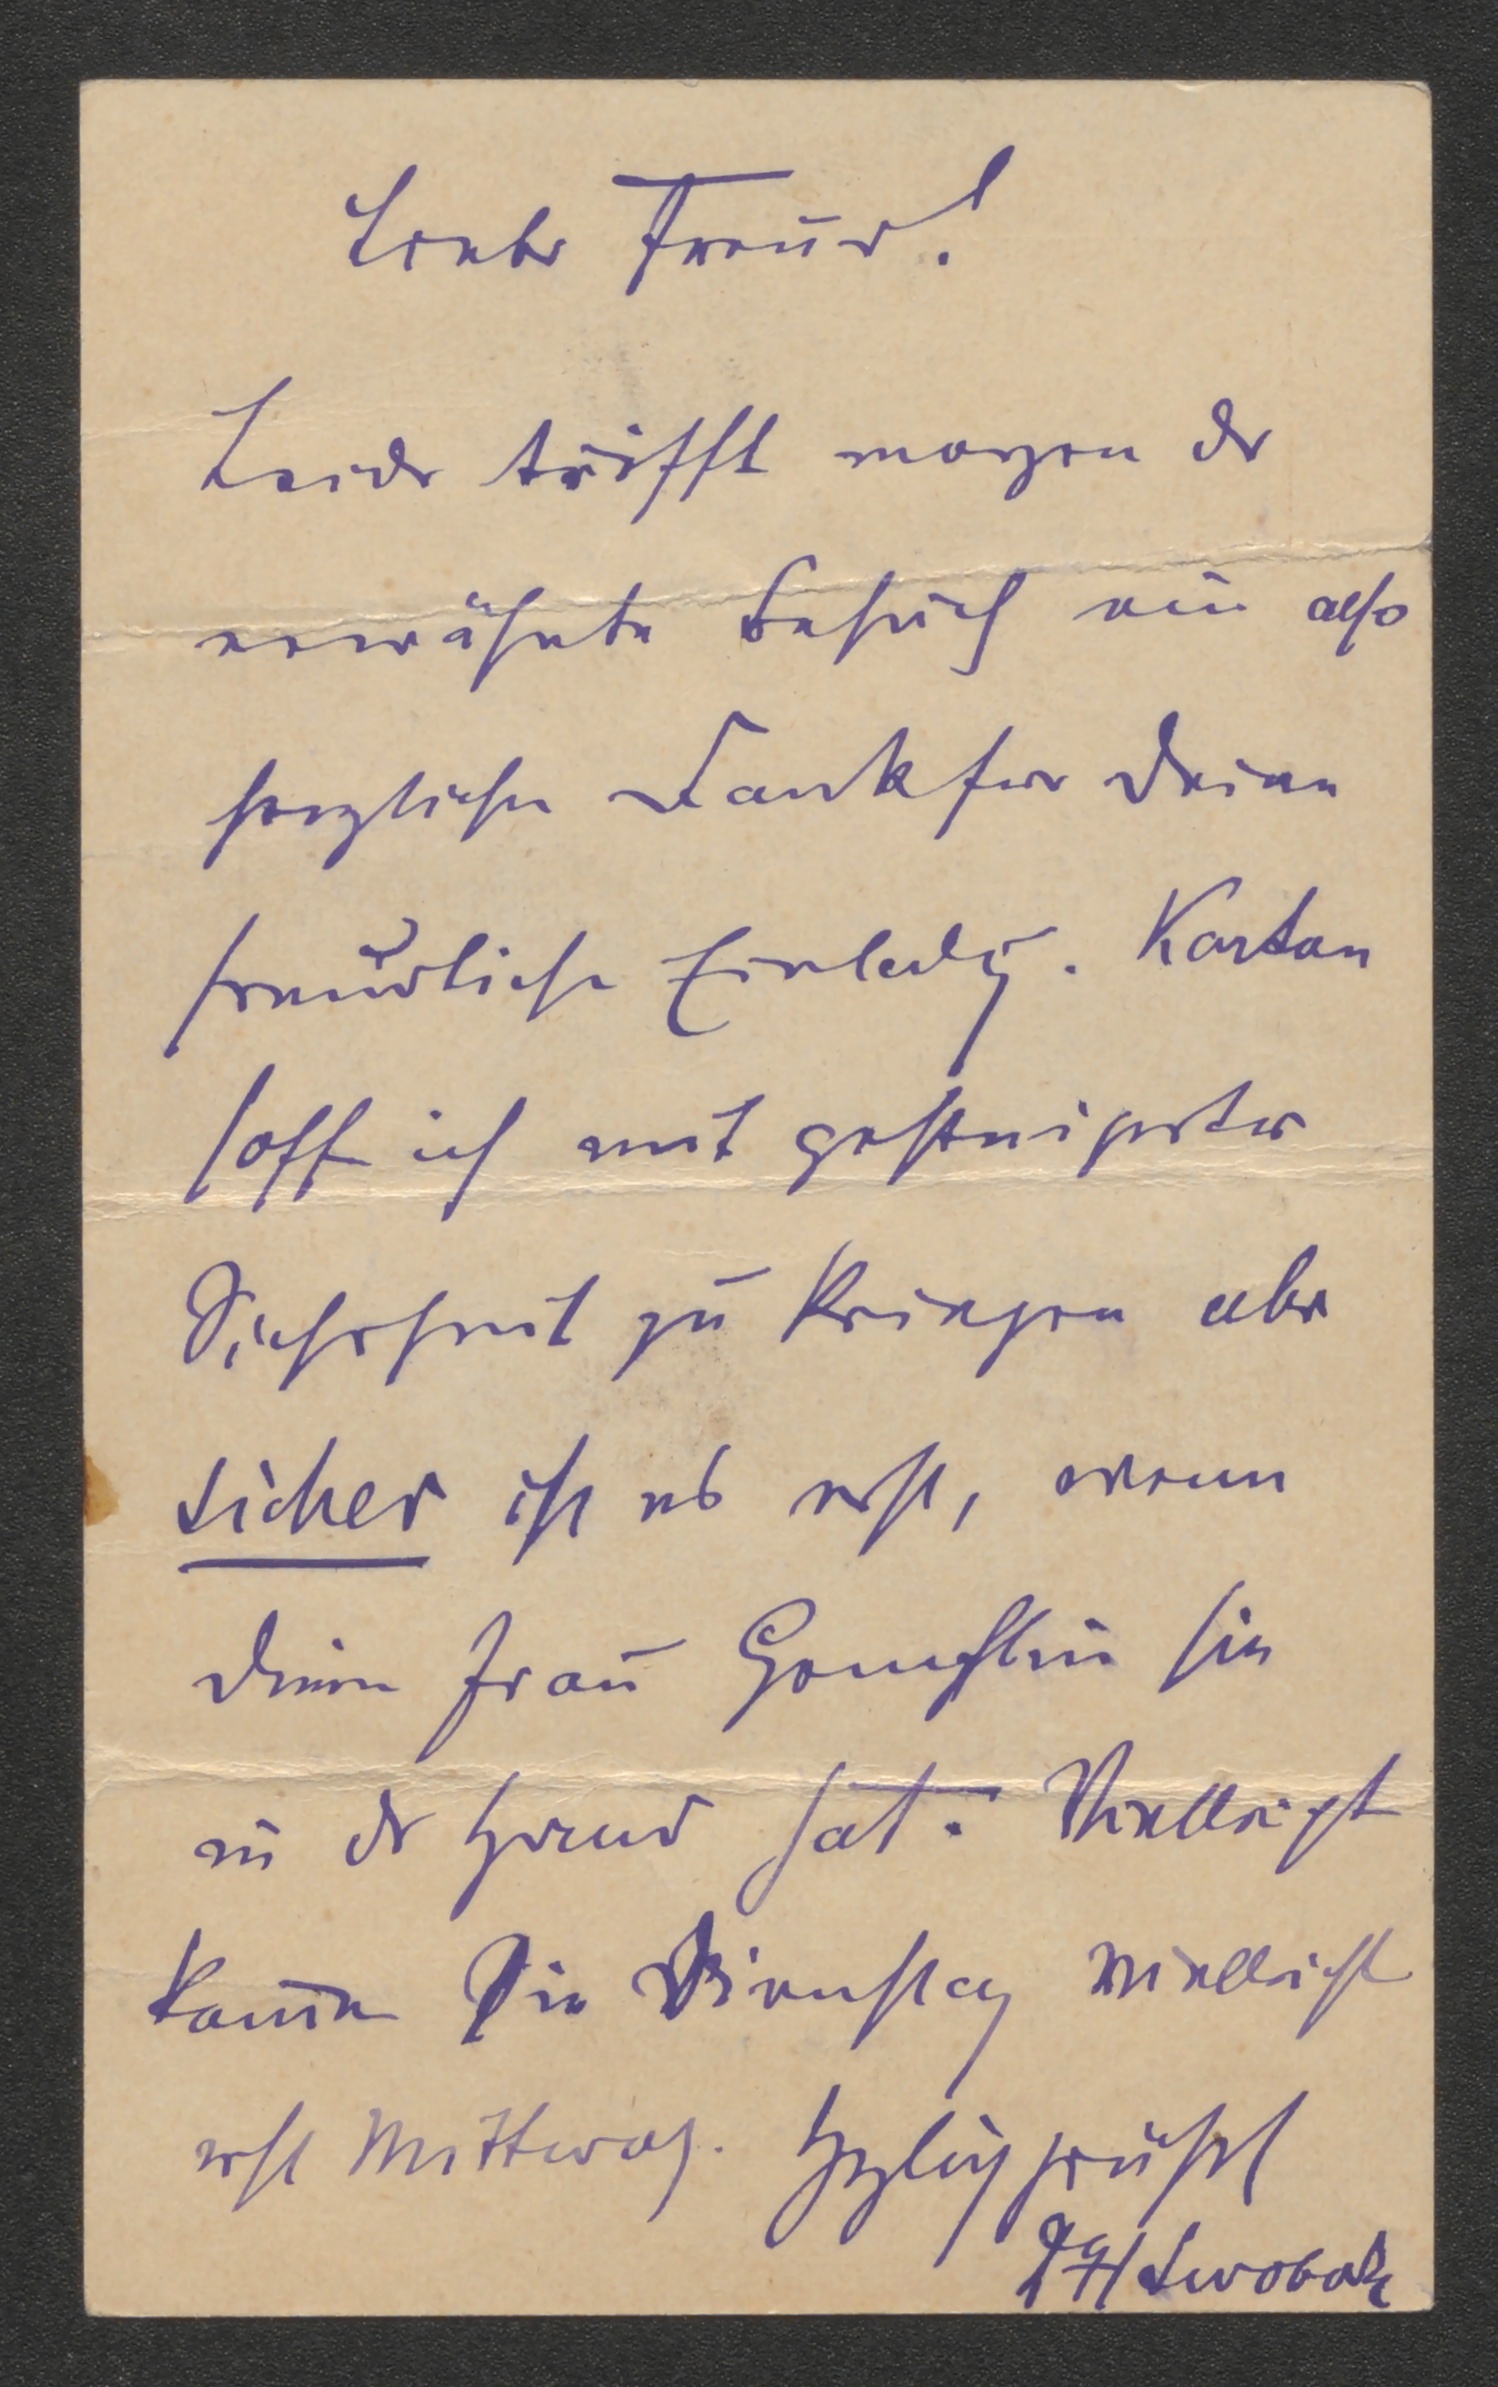 Lieber Freund!
Leider trifft morgen der
erwähnte Besuch ein also
herzlichen Dank für Deine
freundliche Einladg. Karten
hoff ich mit gesteigerter
Sicherheit zu kriegen aber
sicher ist es erst, wenn
Deine Frau Gemahlin sie
in der Hand hat. Vielleicht
kann Sie Dienstag vielleicht
erst Mittwoch. Hzlich grüßt
D HSwoboda